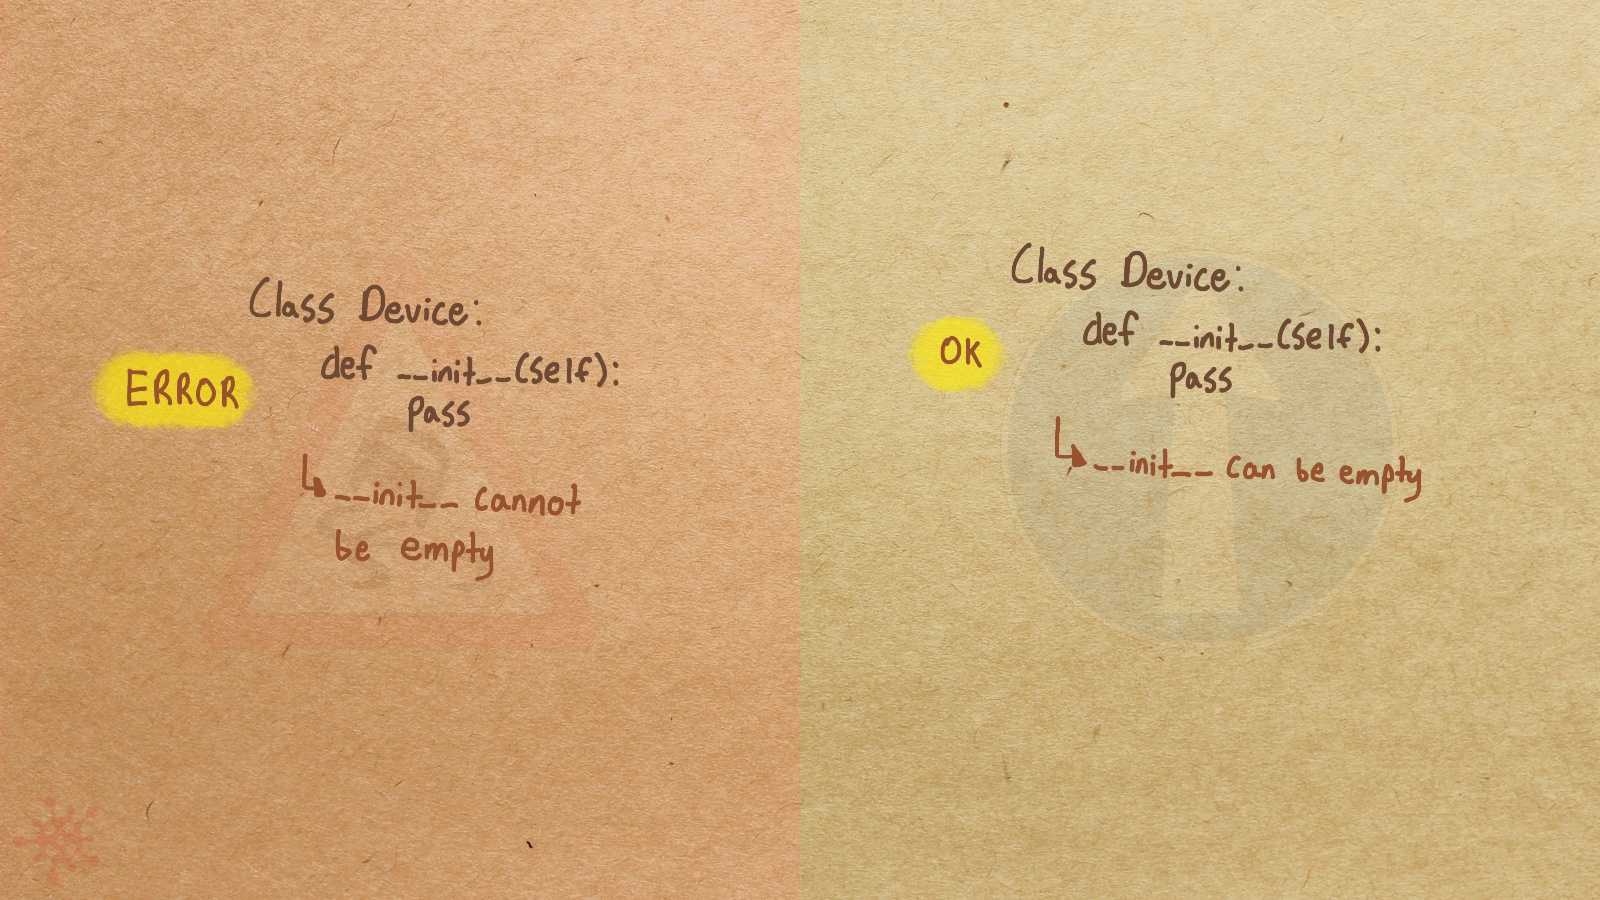 Class Device:
def __init__(self):
ERROR
pass
__init__ cannot
be empty
Class Device:
def __init__(self):
OK
pass
__init__ can be empty